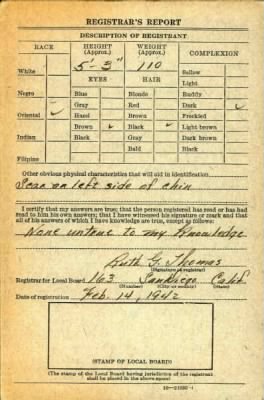 REGISTRAR'S REPORT
DESCRIPTION OF REGISTRANT
RACE HEIGHT (Approx.) WEIGHT (Approx.) COMPLEXION
White 5'-3" 110 Sallow
EYES HAIR Light
Negro Blue Blonde Ruddy
Gray Red Dark ✓
Oriental ✓ Hazel Brown Freckled
Brown ✓ Black ✓ Light brown
Indian Black Gray Dark brown
Bald Black
Filipino
Other obvious physical characteristics that will aid in identification
Scar on left side of chin
I certify that my answers are true; that the person registered has read or has had
read to him his own answers; that I have witnessed his signature or mark and that
all of his answers of which I have knowledge are true, except as follows:
None untrue to my Knowledge
Ruth G. Thomas
(Signature of registrar)
Registrar for Local Board 163 San Diego Calif
(Number) (City or county) (State)
Date of registration Feb. 14, 1942
(STAMP OF LOCAL BOARD)
(The stamp of the Local Board having jurisdiction of the registrant
shall be placed in the above space)